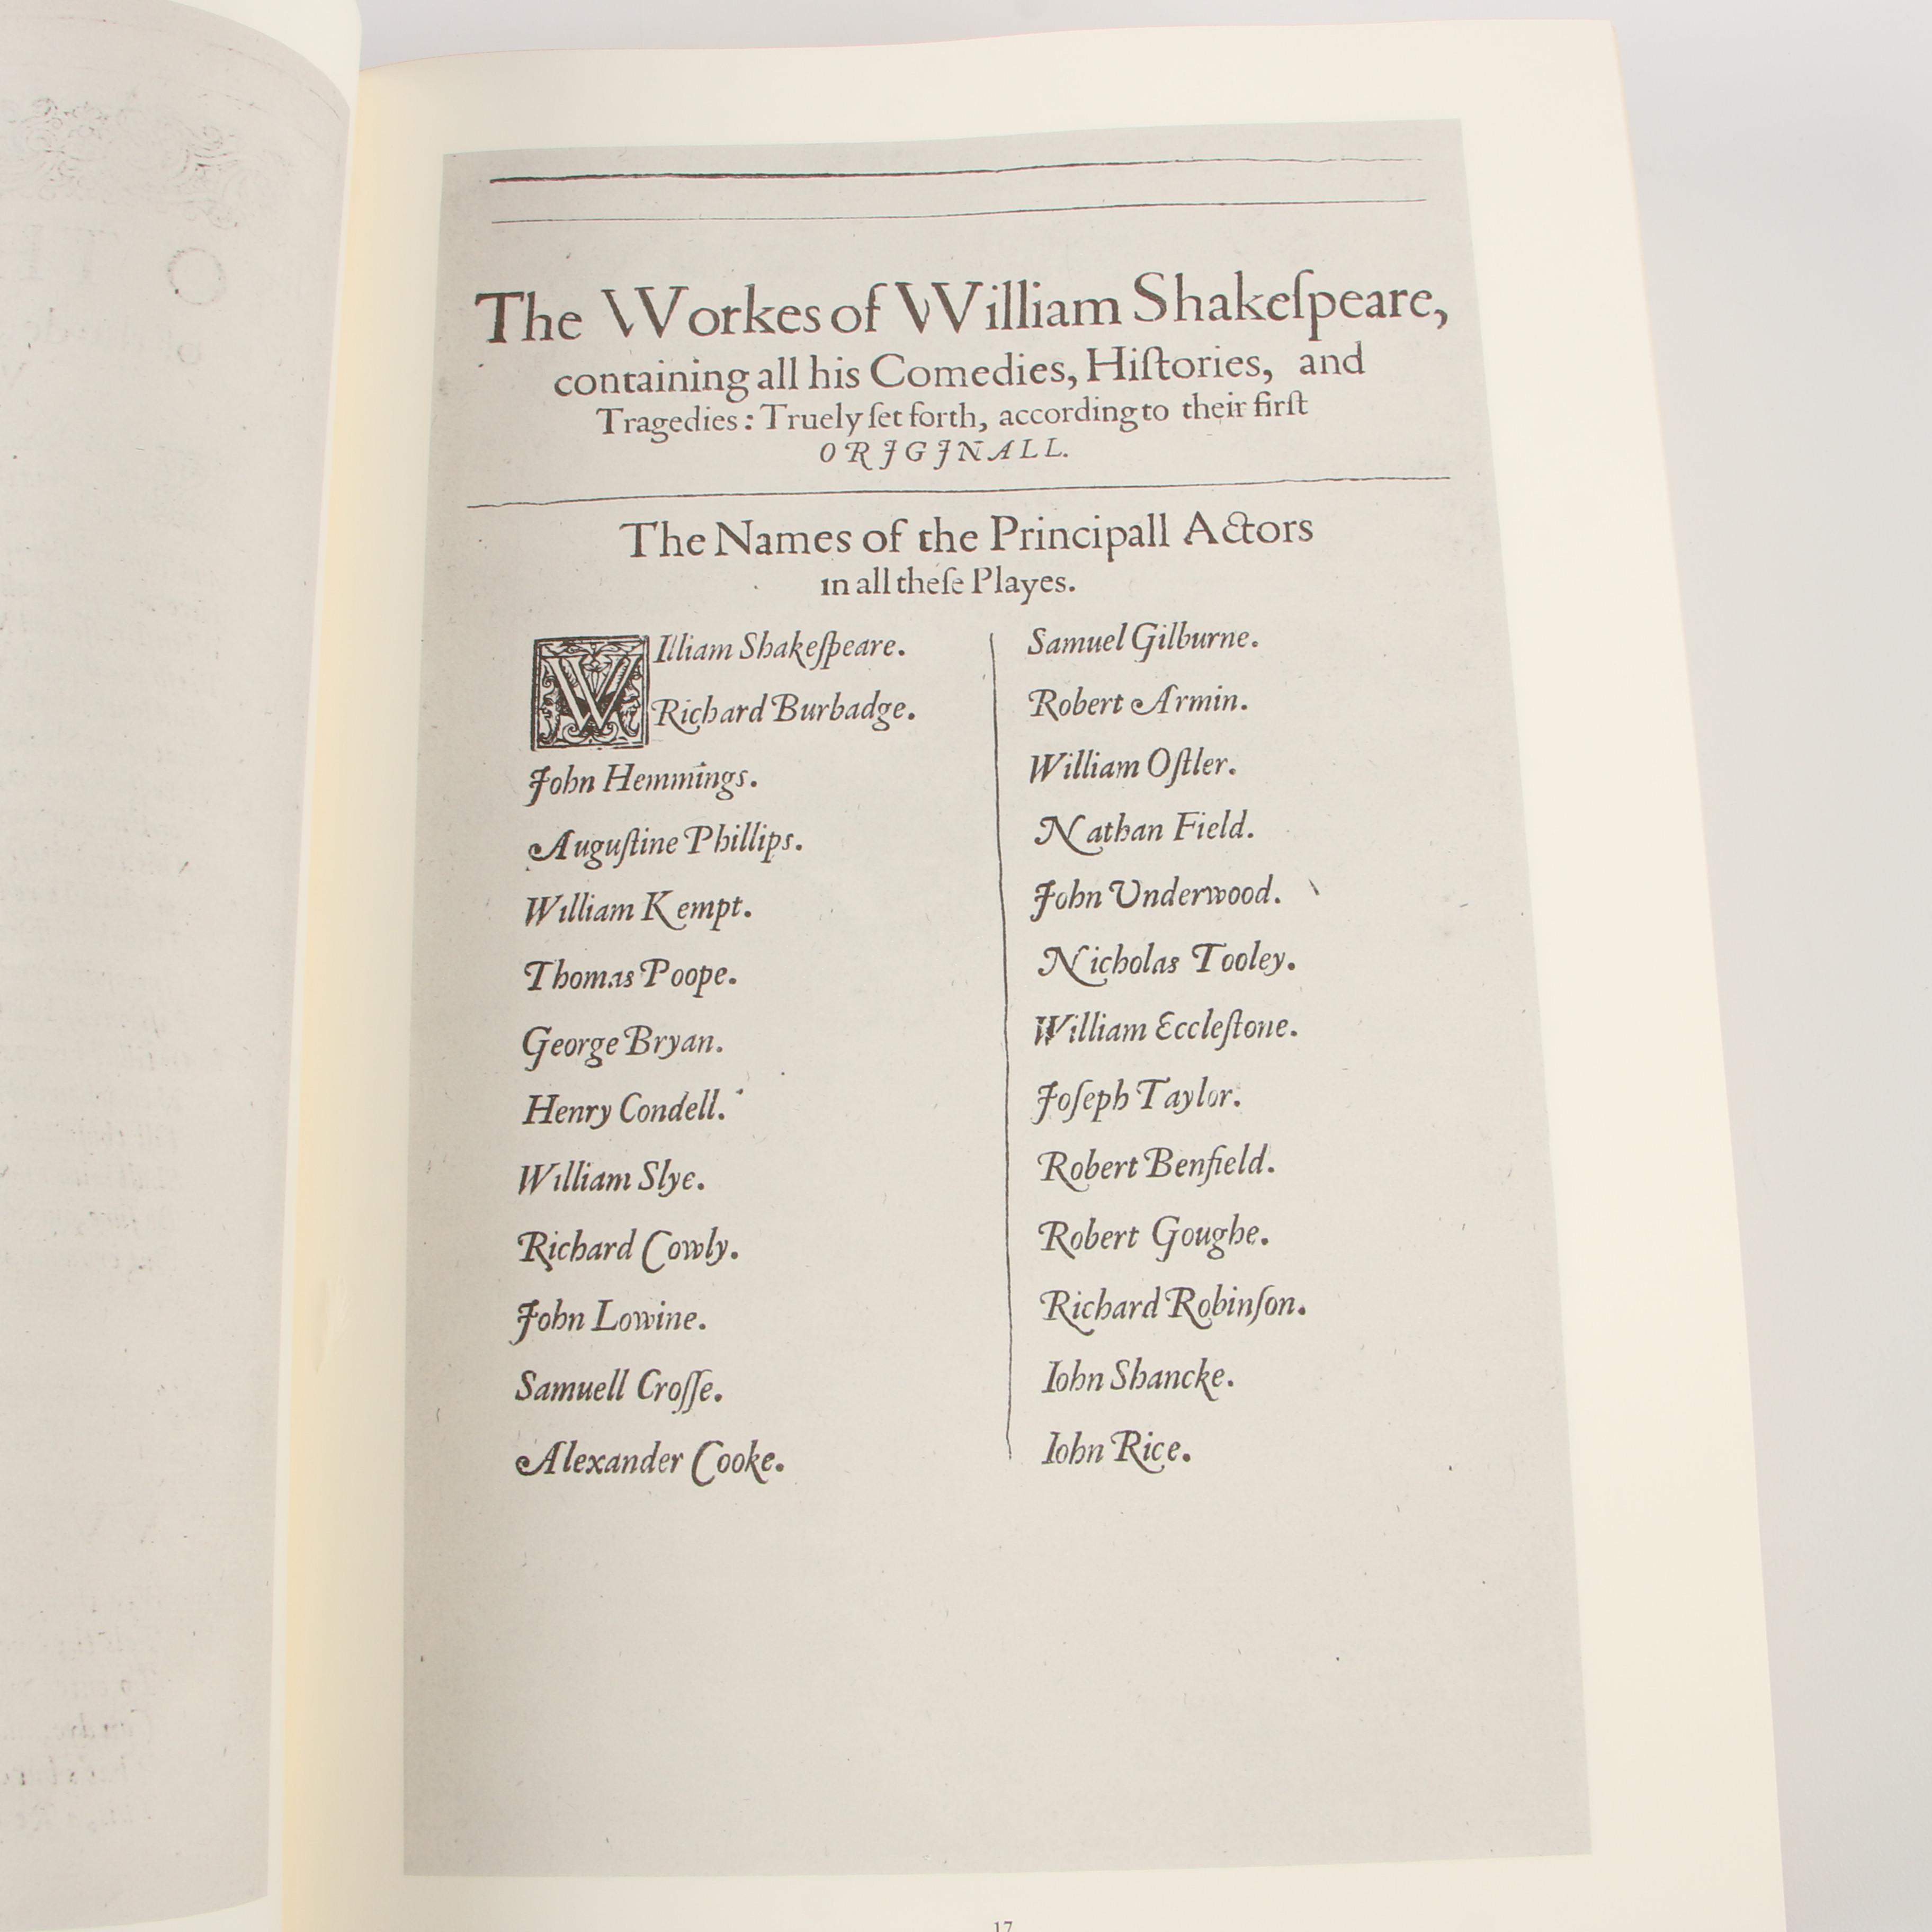 The Workes of William Shakeſpeare,
containing all his Comedies, Hiſtories, and
Tragedies: Truely ſet forth, according to their firſt
ORIGINALL.
The Names of the Principall Actors
in all theſe Playes.
William Shakeſpeare.
Richard Burbadge.
John Hemmings.
Auguſtine Phillips.
William Kempt.
Thomas Poope.
George Bryan.
Henry Condell.
William Slye.
Richard Cowly.
John Lowine.
Samuell Croſſe.
Alexander Cooke.
Samuel Gilburne.
Robert Armin.
William Oſtler.
Nathan Field.
John Underwood.
Nicholas Tooley.
William Eccleſtone.
Joſeph Taylor.
Robert Benfield.
Robert Goughe.
Richard Robinſon.
Iohn Shancke.
Iohn Rice.
17